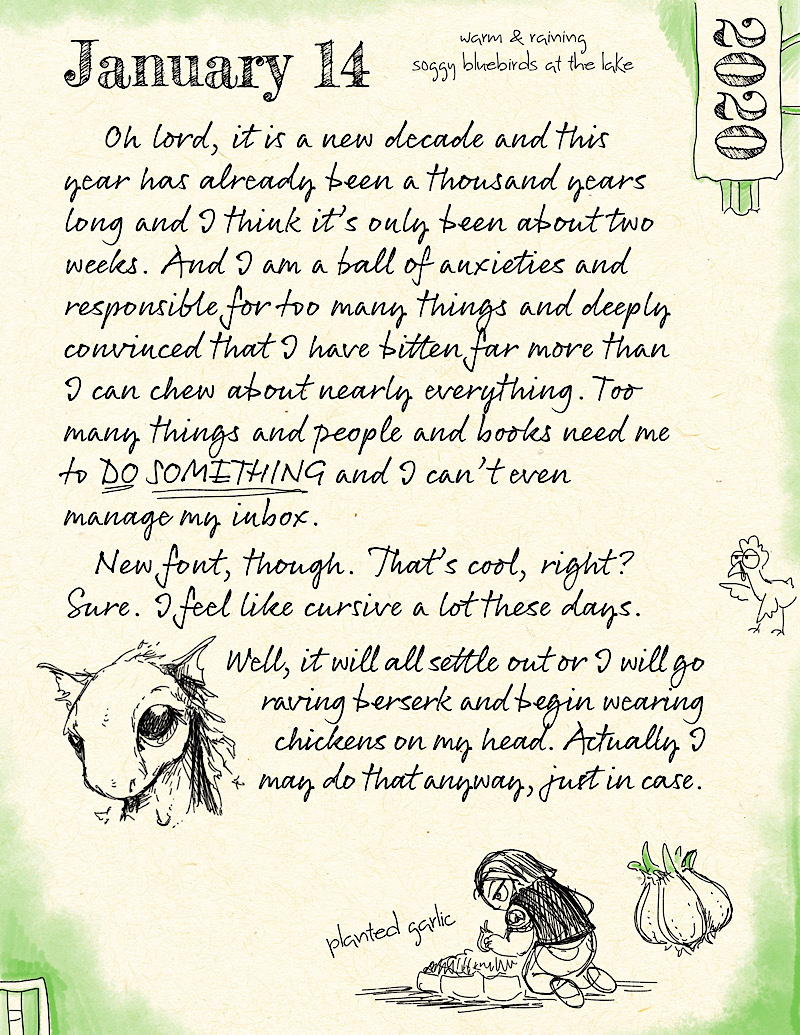 January 14
warm & raining
soggy bluebirds at the lake
2020
Oh lord, it is a new decade and this
year has already been a thousand years
long and I think it's only been about two
weeks. And I am a ball of anxieties and
responsible for too many things and deeply
convinced that I have bitten far more than
I can chew about nearly everything. Too
many things and people and books need me
to DO SOMETHING and I can't even
manage my inbox.
New font, though. That's cool, right?
Sure. I feel like cursive a lot these days.
Well, it will all settle out or I will go
raving berserk and begin wearing
chickens on my head. Actually I
may do that anyway, just in case.
planted garlic